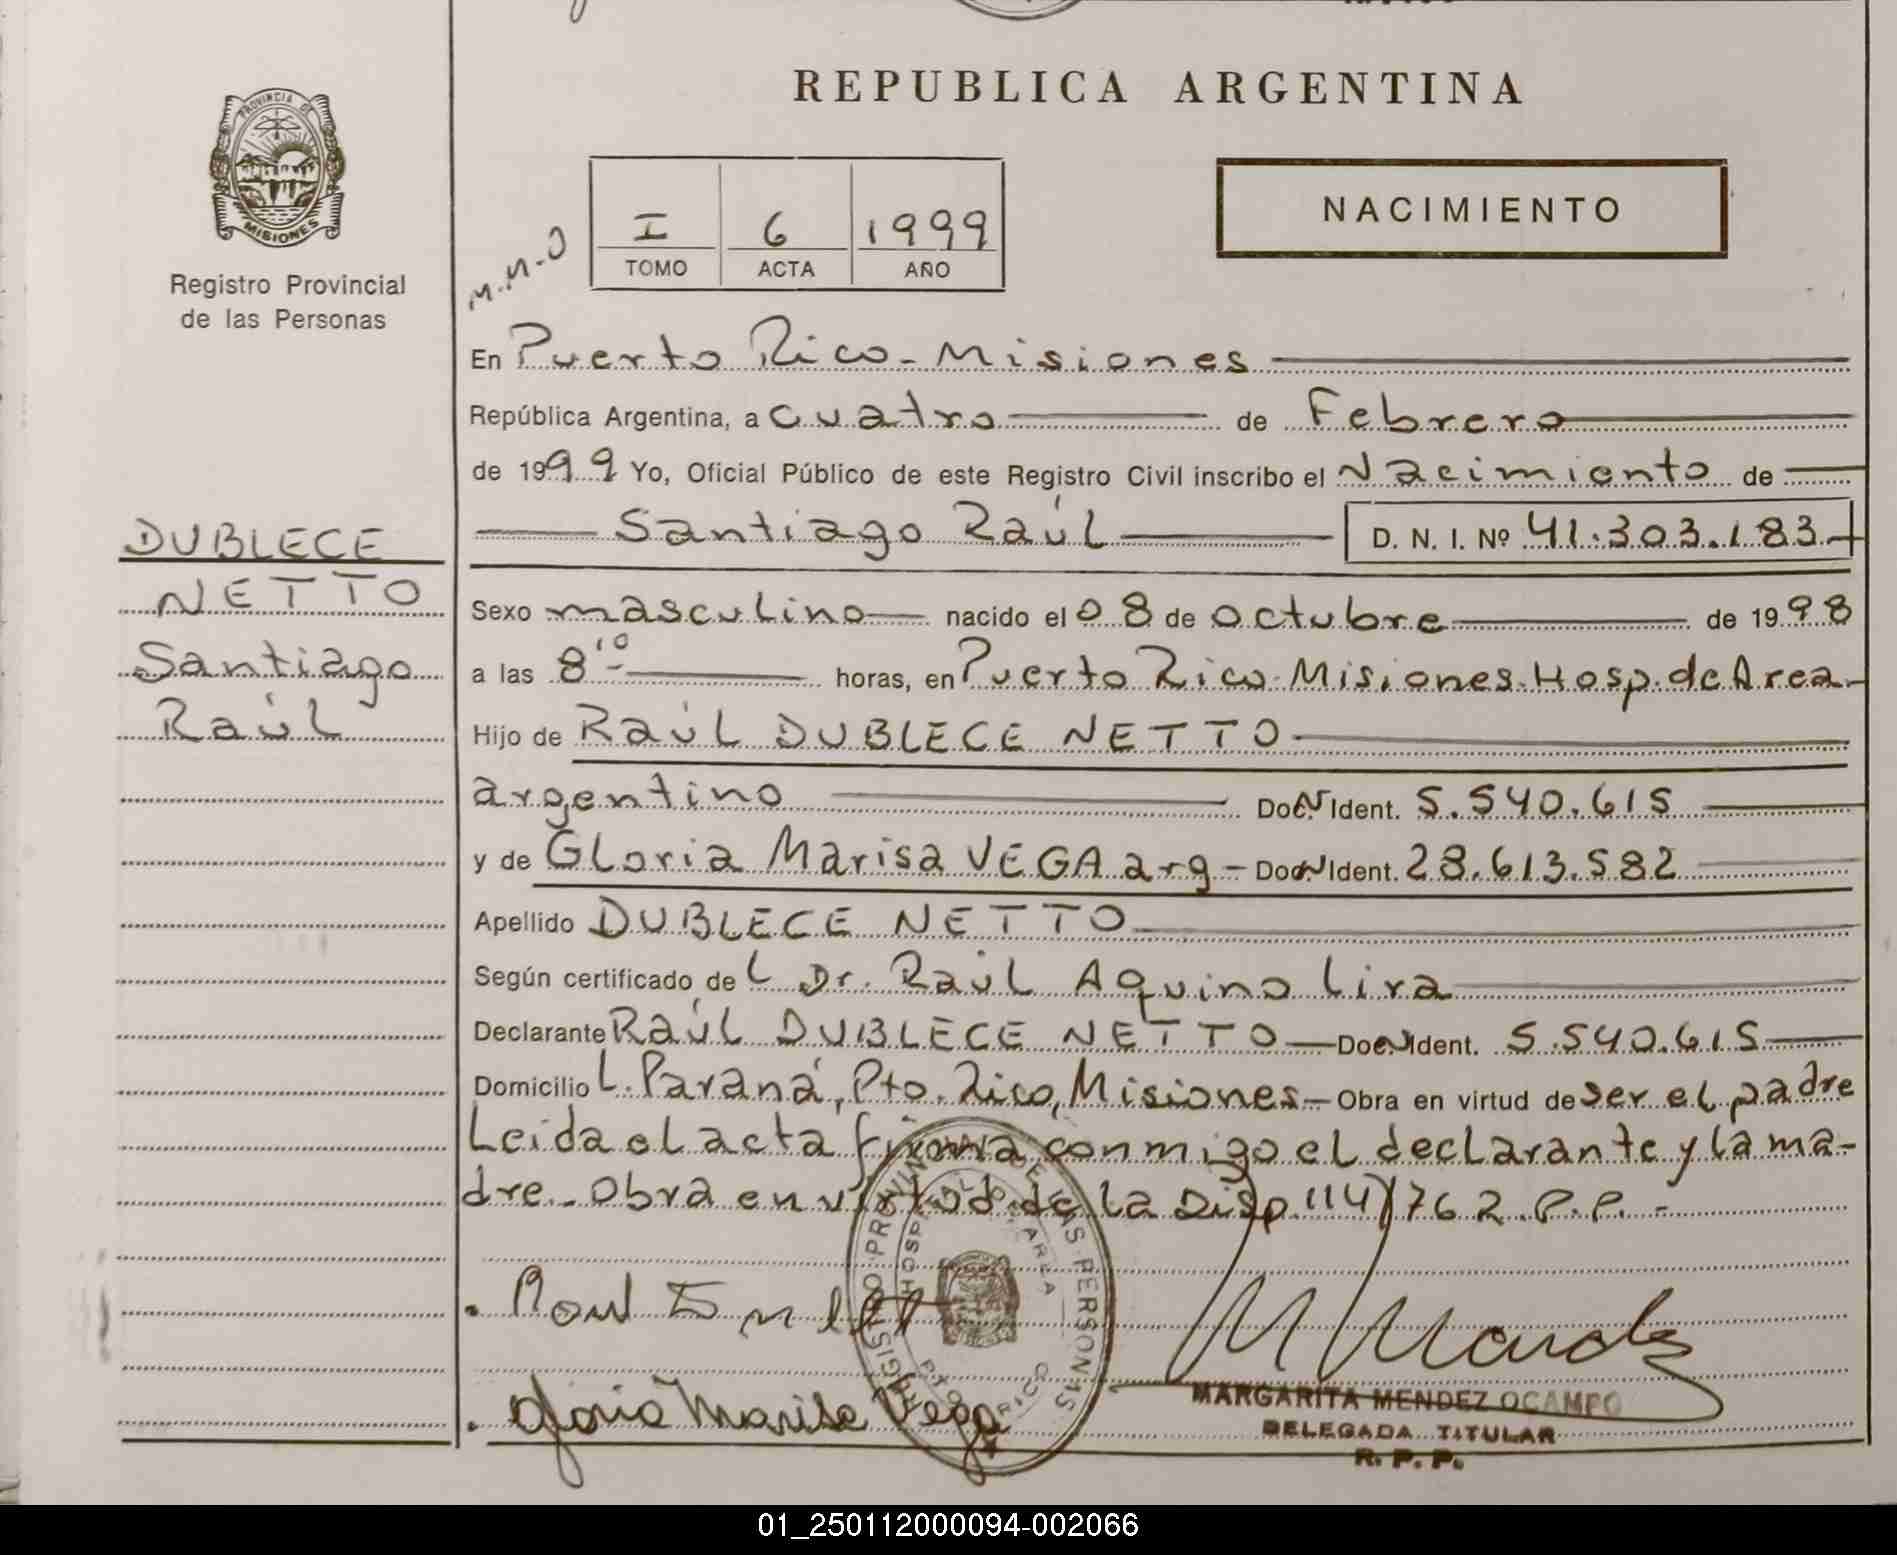 REPUBLICA ARGENTINA
PROVINCIA DE
MISIONES
Registro Provincial
de las Personas
M.N.O
I 6 1999
TOMO ACTA AÑO
NACIMIENTO
En Puerto Rico - Misiones
República Argentina, a cuatro de Febrero
de 1999 Yo, Oficial Público de este Registro Civil inscribo el Nacimiento de
Santiago Raúl D. N. I. Nº 41.303.183
DUBLECE
NETTO
Santiago
Raúl
Sexo masculino nacido el 08 de octubre de 1998
a las 8'10 horas, en Puerto Rico-Misiones-Hosp. de Area
Hijo de Raúl DUBLECE NETTO
argentino Doc. N Ident. 5.540.615
y de Gloria Marisa VEGA arg - Doc. N Ident. 28.613.582
Apellido DUBLECE NETTO
Según certificado del Dr. Raúl Aquino Lira
Declarante Raúl DUBLECE NETTO - Doc. N Ident. 5.540.615
Domicilio L. Paraná, Pto. Rico, Misiones - Obra en virtud de ser el padre
Leida el acta firma conmigo el declarante y la ma-
dre - Obra en virtud de la Disp 114/76 R.P.P. -
REGISTRO PROVINCIAL DE LAS PERSONAS
HOSPITAL DE AREA
PTO. RICO
Gloria Marisa Vega
M Mendez
MARGARITA MENDEZ OCAMPO
DELEGADA TITULAR
R. P. P.
01_250112000094-002066